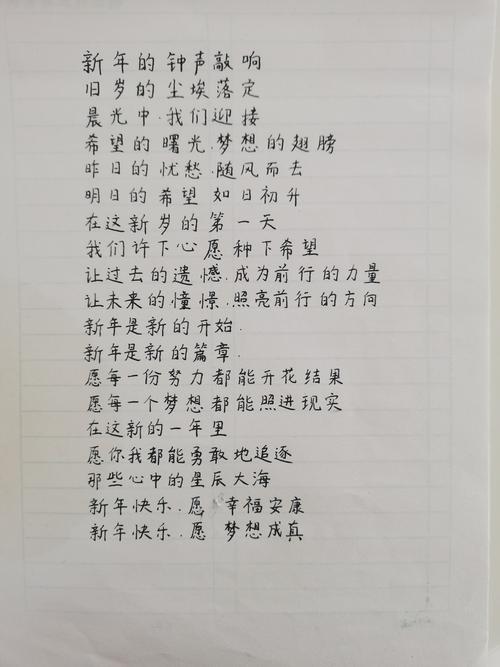 新年的钟声敲响
旧岁的尘埃落定
晨光中.我们迎接
希望的曙光.梦想的翅膀
昨日的忧愁.随风而去
明日的希望 如日初升
在这新岁的第一天
我们许下心愿种下希望
让过去的遗憾.成为前行的力量
让未来的憧憬.照亮前行的方向
新年是新的开始.
新年是新的篇章.
愿每一份努力都能开花结果
愿每一个梦想都能照进现实
在这新的一年里
愿你我都能勇敢地追逐
那些心中的星辰大海
新年快乐.愿 幸福安康
新年快乐.愿 梦想成真